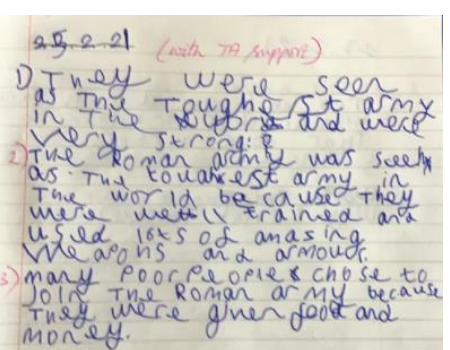 25.2.21 (with TA support)
1) They were seen
as the toughest army
in the world and were
very strong.
2) The Roman army was seen
as the toughest army in
the world because they
were well trained and
used lots of amasing
weapons and armour.
3) many poor people chose to
join the Roman army because
they were given food and
money.